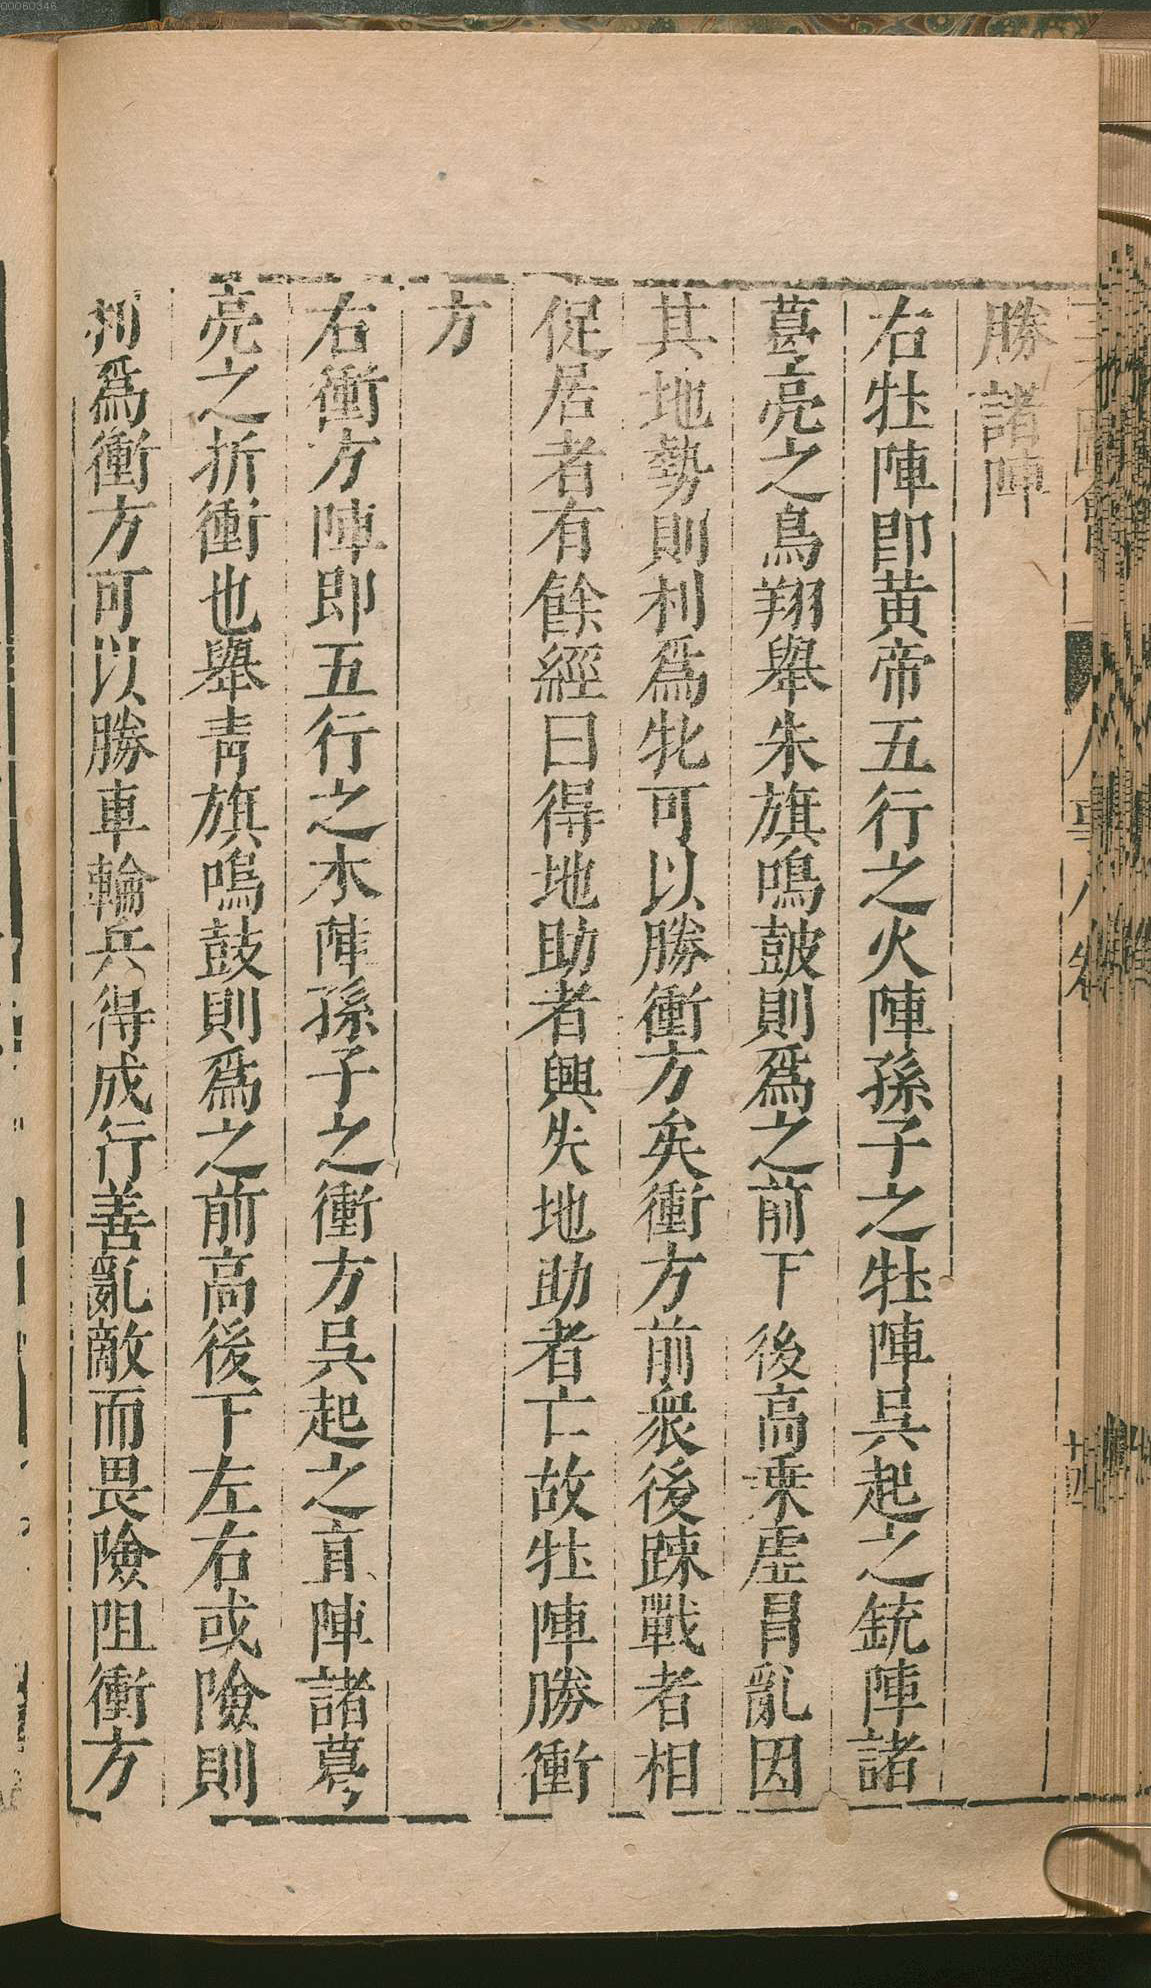 勝諸陣
右牡陣卽黄帝五行之火陣孫子之牡陣吳起之銃陣諸
葛亮之鳥翔舉朱旗鳴鼓則爲之前下後高乗虛冐亂因
其地勢則利爲牝可以勝衝方矣衝方前衆後踈戰者相
促居者有餘經曰得地助者興失地助者亡故牡陣勝衝
方
右衝方陣即五行之木陣孫子之衝方吳起之直陣諸葛
亮之折衝也舉靑旗鳴鼓則爲之前高後下左右或險則
利爲衝方可以勝車輪兵得成行善亂敵而畏險阻衝方
人事八卷
十四
00080346